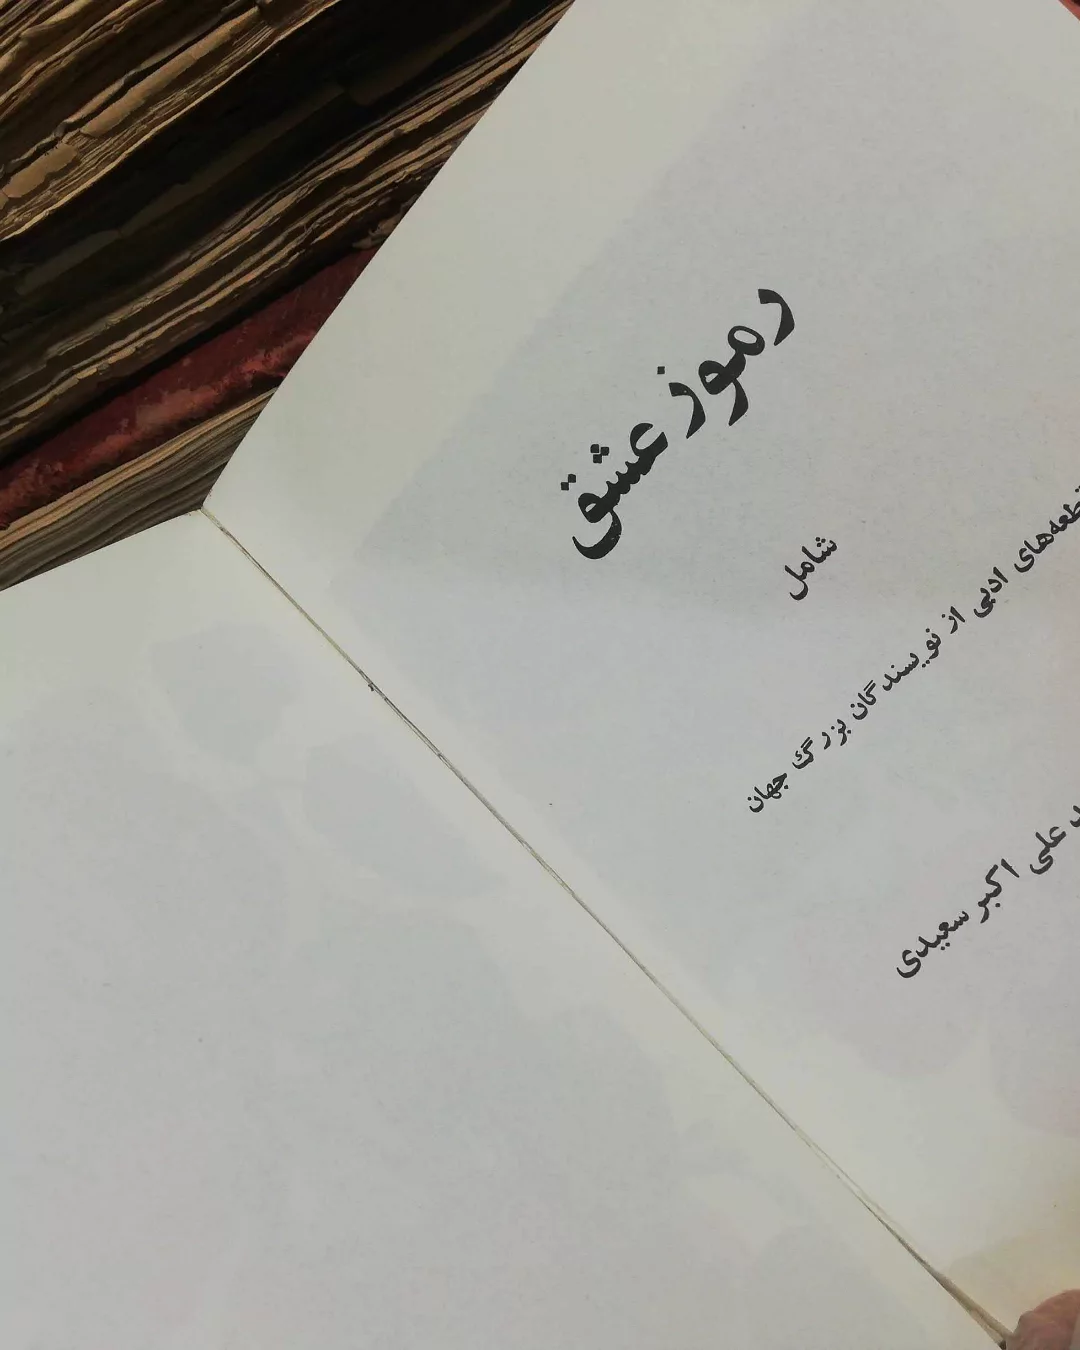 رموز عشق
شامل
قطعه‌های ادبی از نویسندگان بزرگ جهان
علی اکبر سعیدی